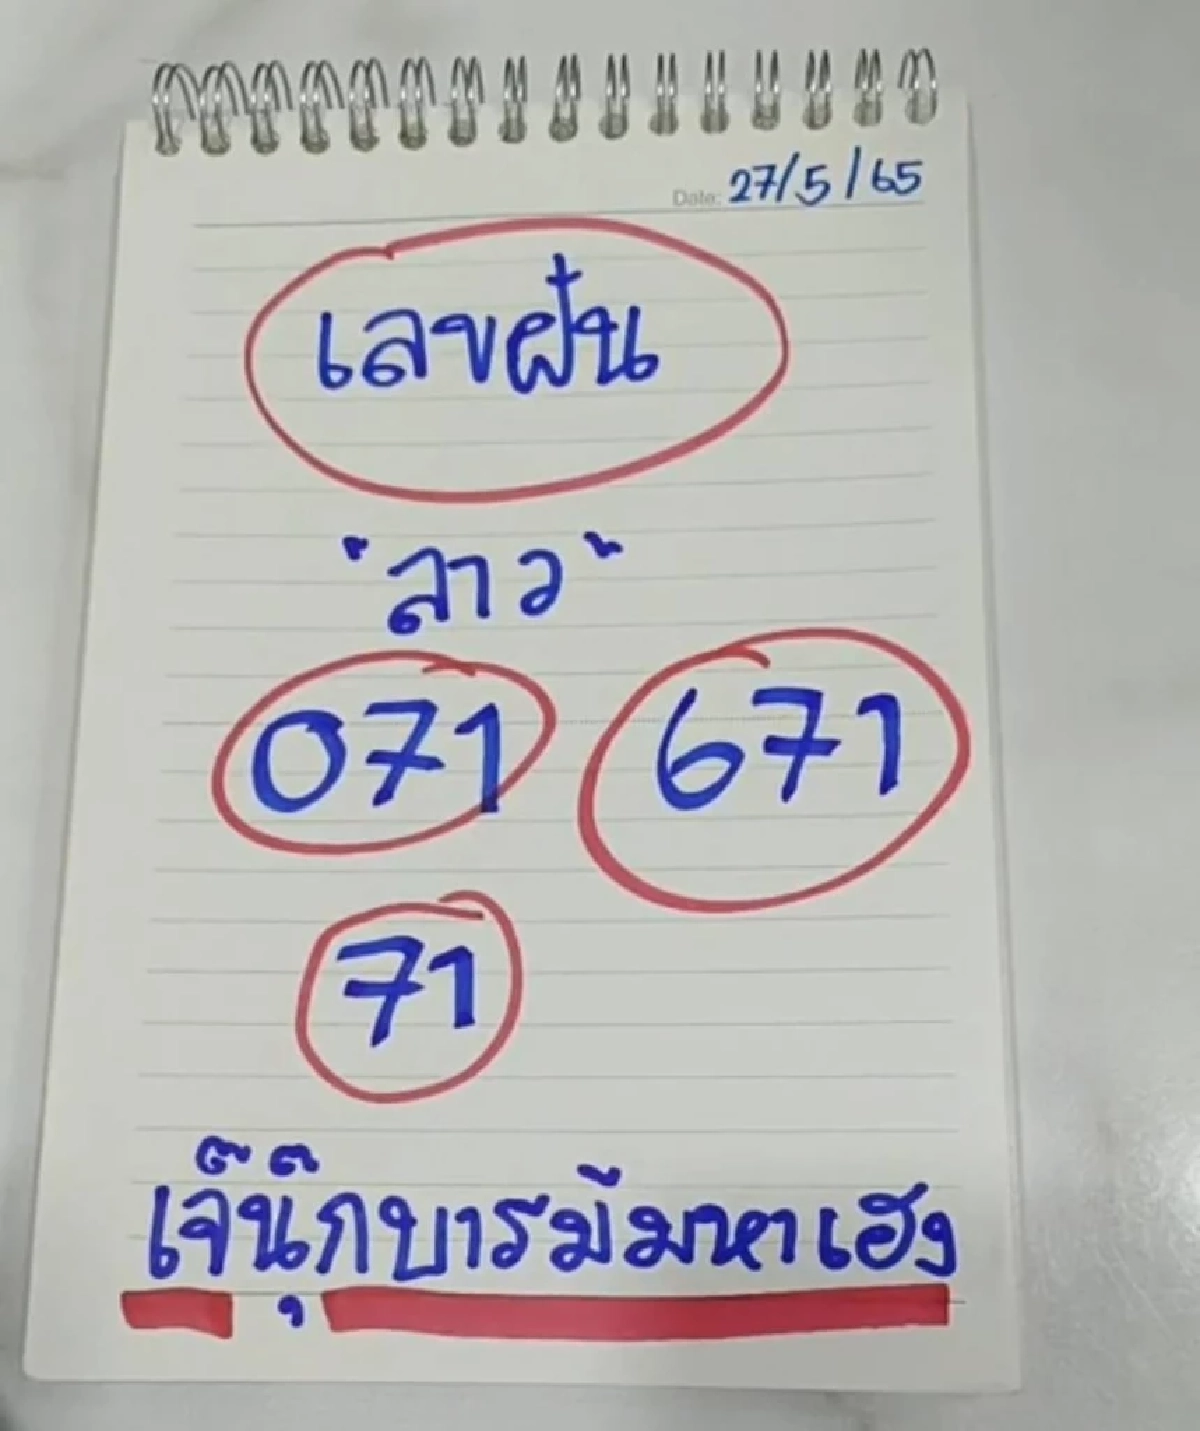 Date: 27/5/65
เลขฝัน
"ลาว"
071 671
71
เจ๊นุ๊กบารมีมหาเฮง